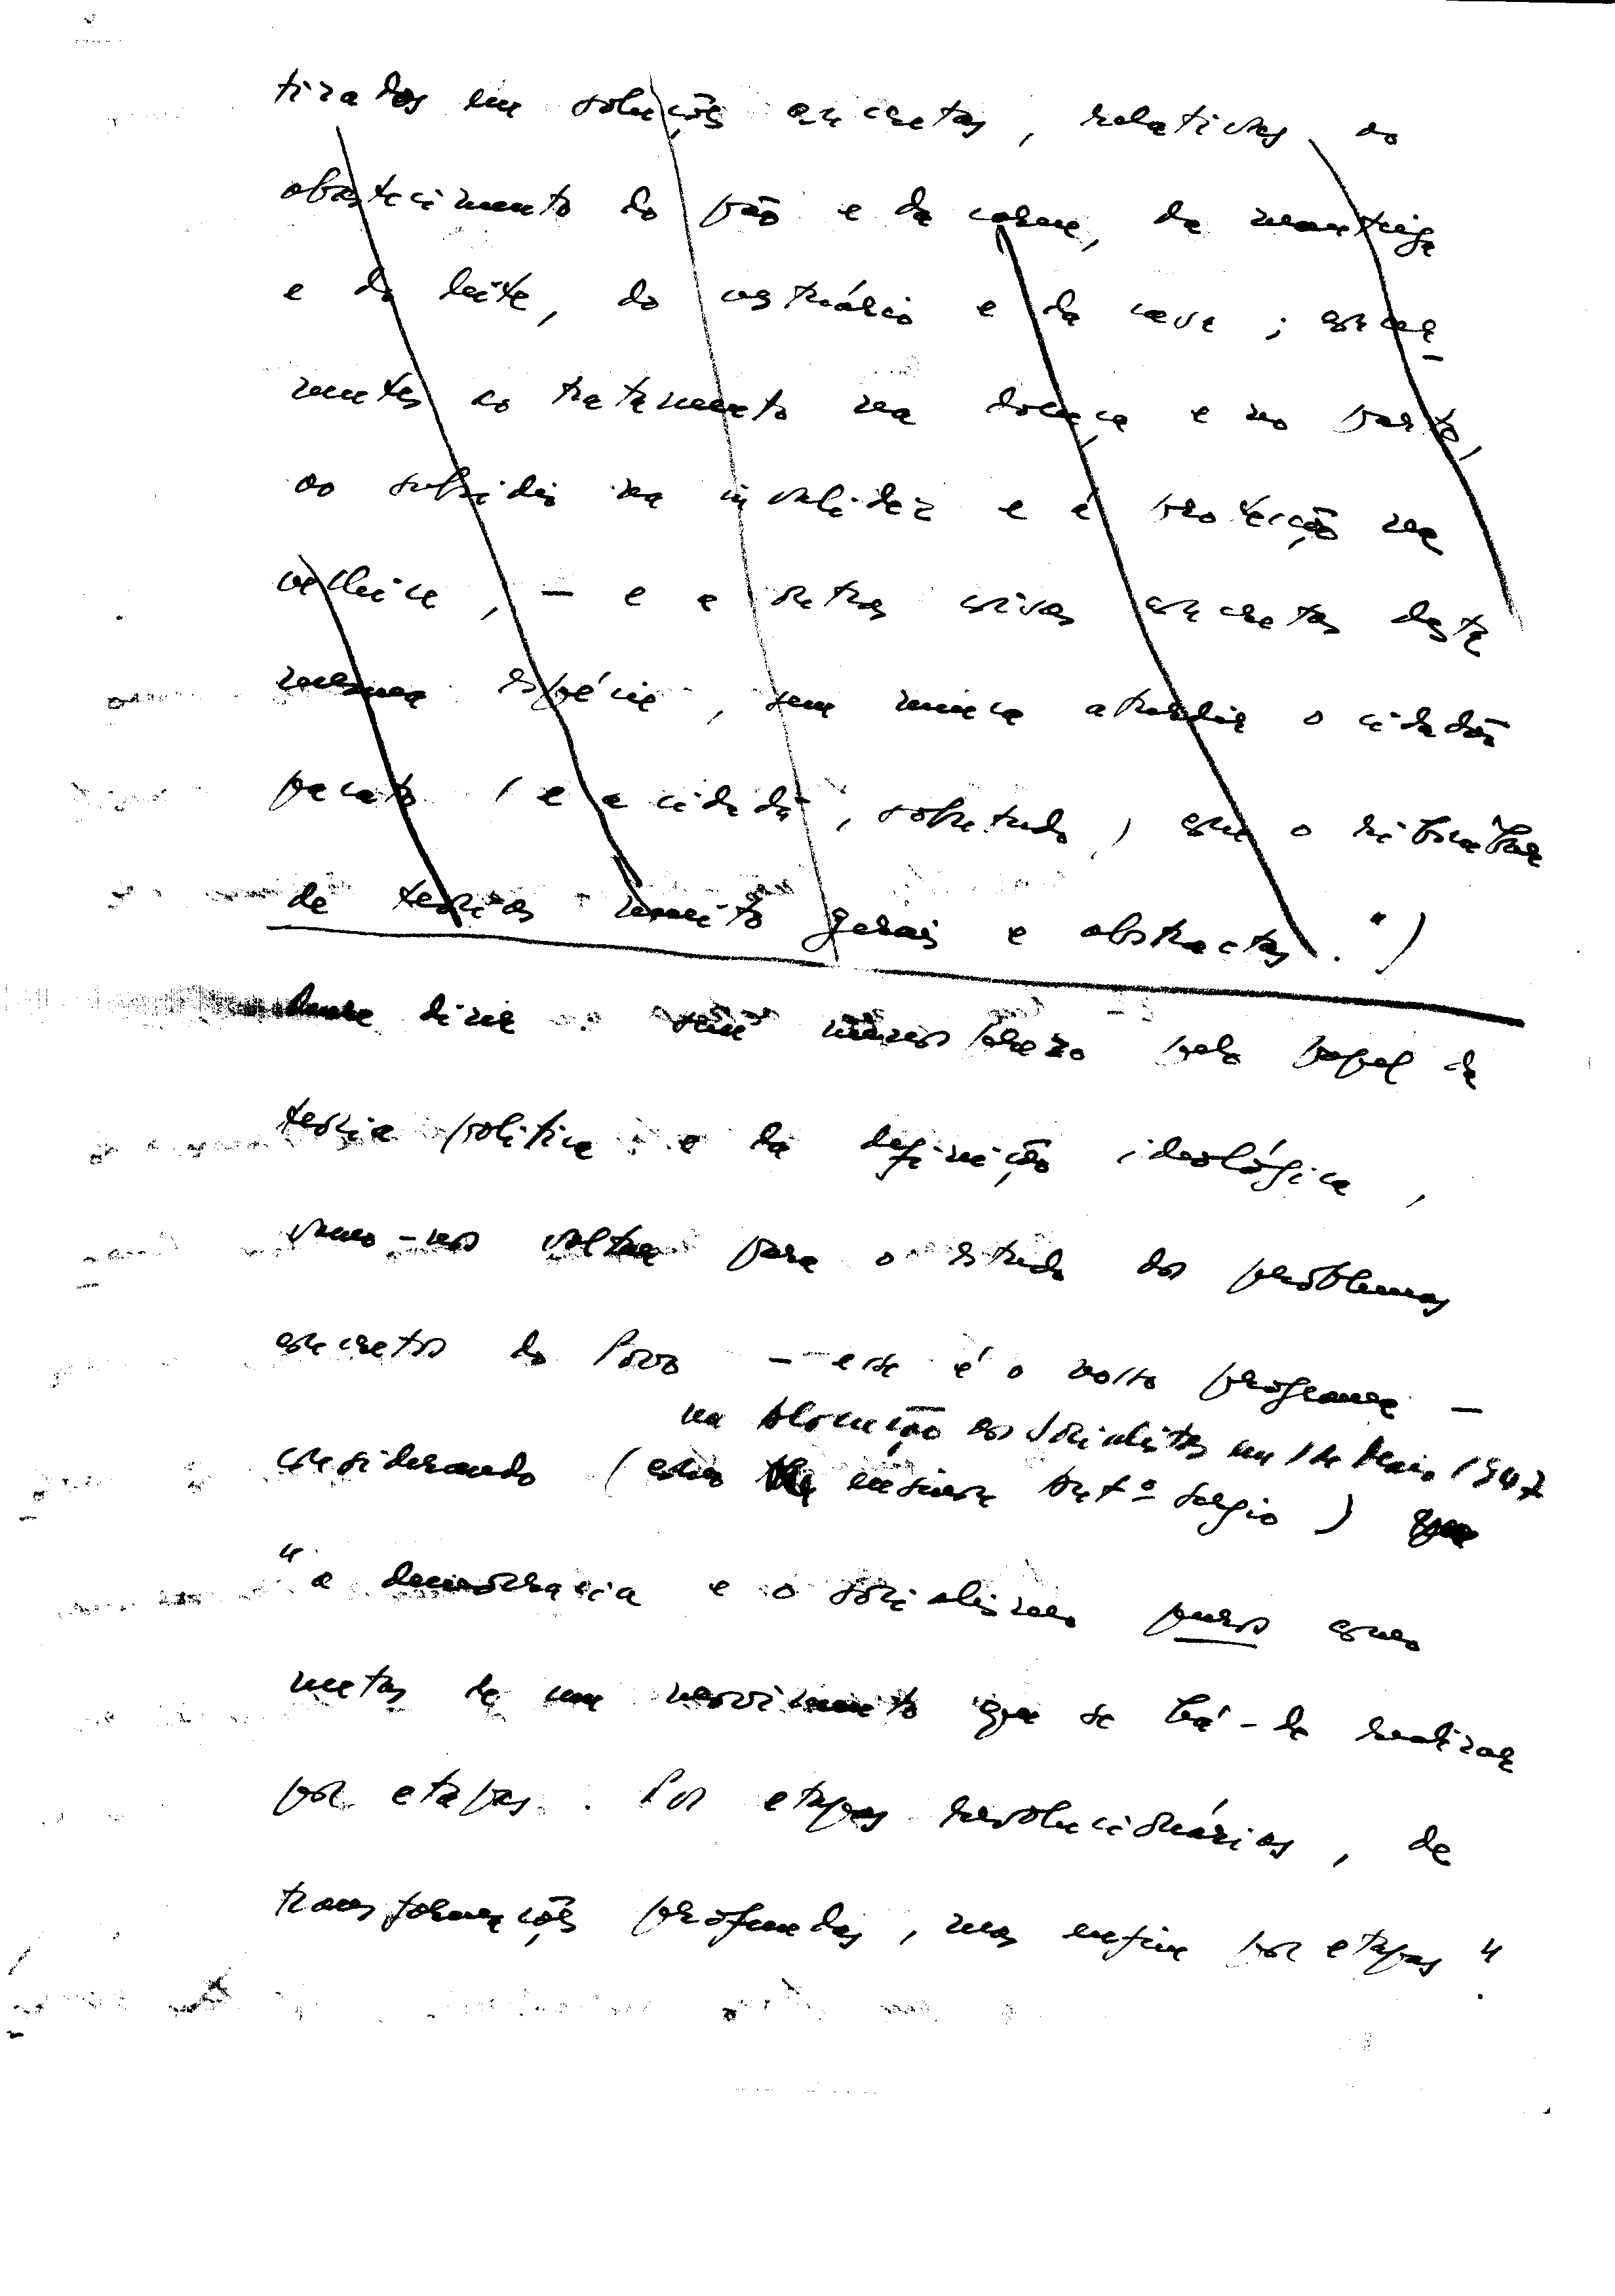 tizados em soluções concretas, relativas ao
abastecimento do pão e da carne, da manteiga
e do leite, do vestuário e da casa; concer-
nentes ao tratamento na doença e no parto,
ao subsídio na invalidez e à protecção na
velhice, – e a outras coisas concretas desta
mesma espécie, sem nunca aturdir o cidadão
pacato (e a cidadã, sobretudo,) com o
de teorias muito gerais e abstractas.")
dizer. sem menosprezo pelo papel da
teoria política e da definição ideológica,
vamo-nos voltar para o estudo dos problemas
concretos do Povo – esse é o nosso programa –
na alocução aos socialistas em 1 de Maio 1947
considerando (como ensinou Antº Sergio) que
"a democracia e o socialismo puros como
metas de um movimento que se há-de realizar
por etapas. Por etapas revolucionárias, de
transformações profundas, mas enfim por etapas".